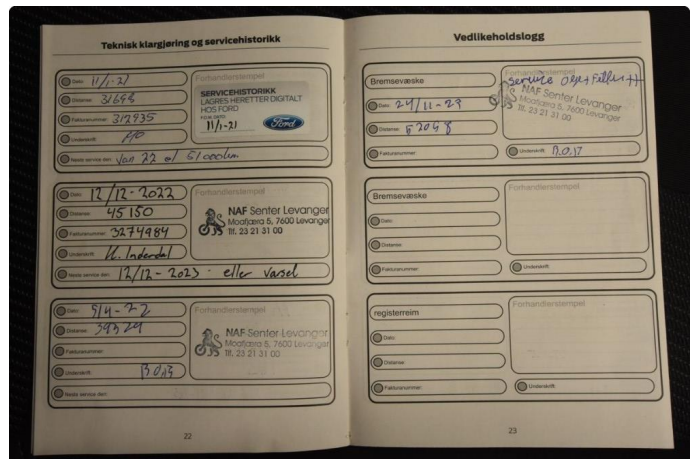 Teknisk klargjøring og servicehistorikk
Dato: 11/1-21
Distanse: 31693
Fakturanummer: 312935
Underskrift:
Neste service den: Jan 22 el 51000km
Forhandlerstempel
SERVICEHISTORIKK
LAGRES HERETTER DIGITALT
HOS FORD
F.O.M. DATO:
11/1-21
Ford
Dato: 12/12-2022
Distanse: 45150
Fakturanummer: 3274984
Underskrift: K. Inderdal
Neste service den: 12/12-2023 - eller varsel
Forhandlerstempel
NAF Senter Levanger
Moafjæra 5, 7600 Levanger
Tlf. 23 21 31 00
Dato: 5/4-22
Distanse: 39329
Fakturanummer:
Underskrift:
Neste service den:
Forhandlerstempel
NAF Senter Levanger
Moafjæra 5, 7600 Levanger
Tlf. 23 21 31 00
22
Vedlikeholdslogg
Bremsevæske
Dato: 24/11-23
Distanse:
Fakturanummer
Forhandlerstempel
service olje+Filter
NAF Senter Levanger
Moafjæra 5, 7600 Levanger
Tlf. 23 21 31 00
Underskrift:
Bremsevæske
Dato:
Distanse
Fakturanummer
Forhandlerstempel
Underskrift:
registerreim
Dato:
Distanse:
Fakturanummer
Forhandlerstempel
Underskrift:
23